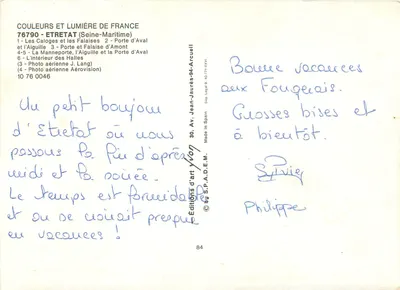 COULEURS ET LUMIÈRE DE FRANCE
76790 - ETRETAT (Seine-Maritime)
1 - Les Caloges et les Falaises 2 - Porte d'Aval
et l'Aiguille 3 - Porte et Falaise d'Amont
4-5 - La Manneporte, l'Aiguille et la Porte d'Aval
6 - L'intérieur des Halles
(3 - Photo aérienne J. Lang)
(4 - Photo aérienne Aérovision)
10 76 0046
Un petit bonjour
d'Etretat où nous
passons la fin d'après
midi et la soirée.
Le temps est formidable
et on se croirait presque
en vacances !
Editions d'art yvon 30, Av. Jean-Jaurès-94-Arcueil
© by S.P.A.D.E.M.
Made in Spain
84
Bonne vacances
aux Fougerais.
Grosses bises et
à bientôt.
Sylvie
Philippe